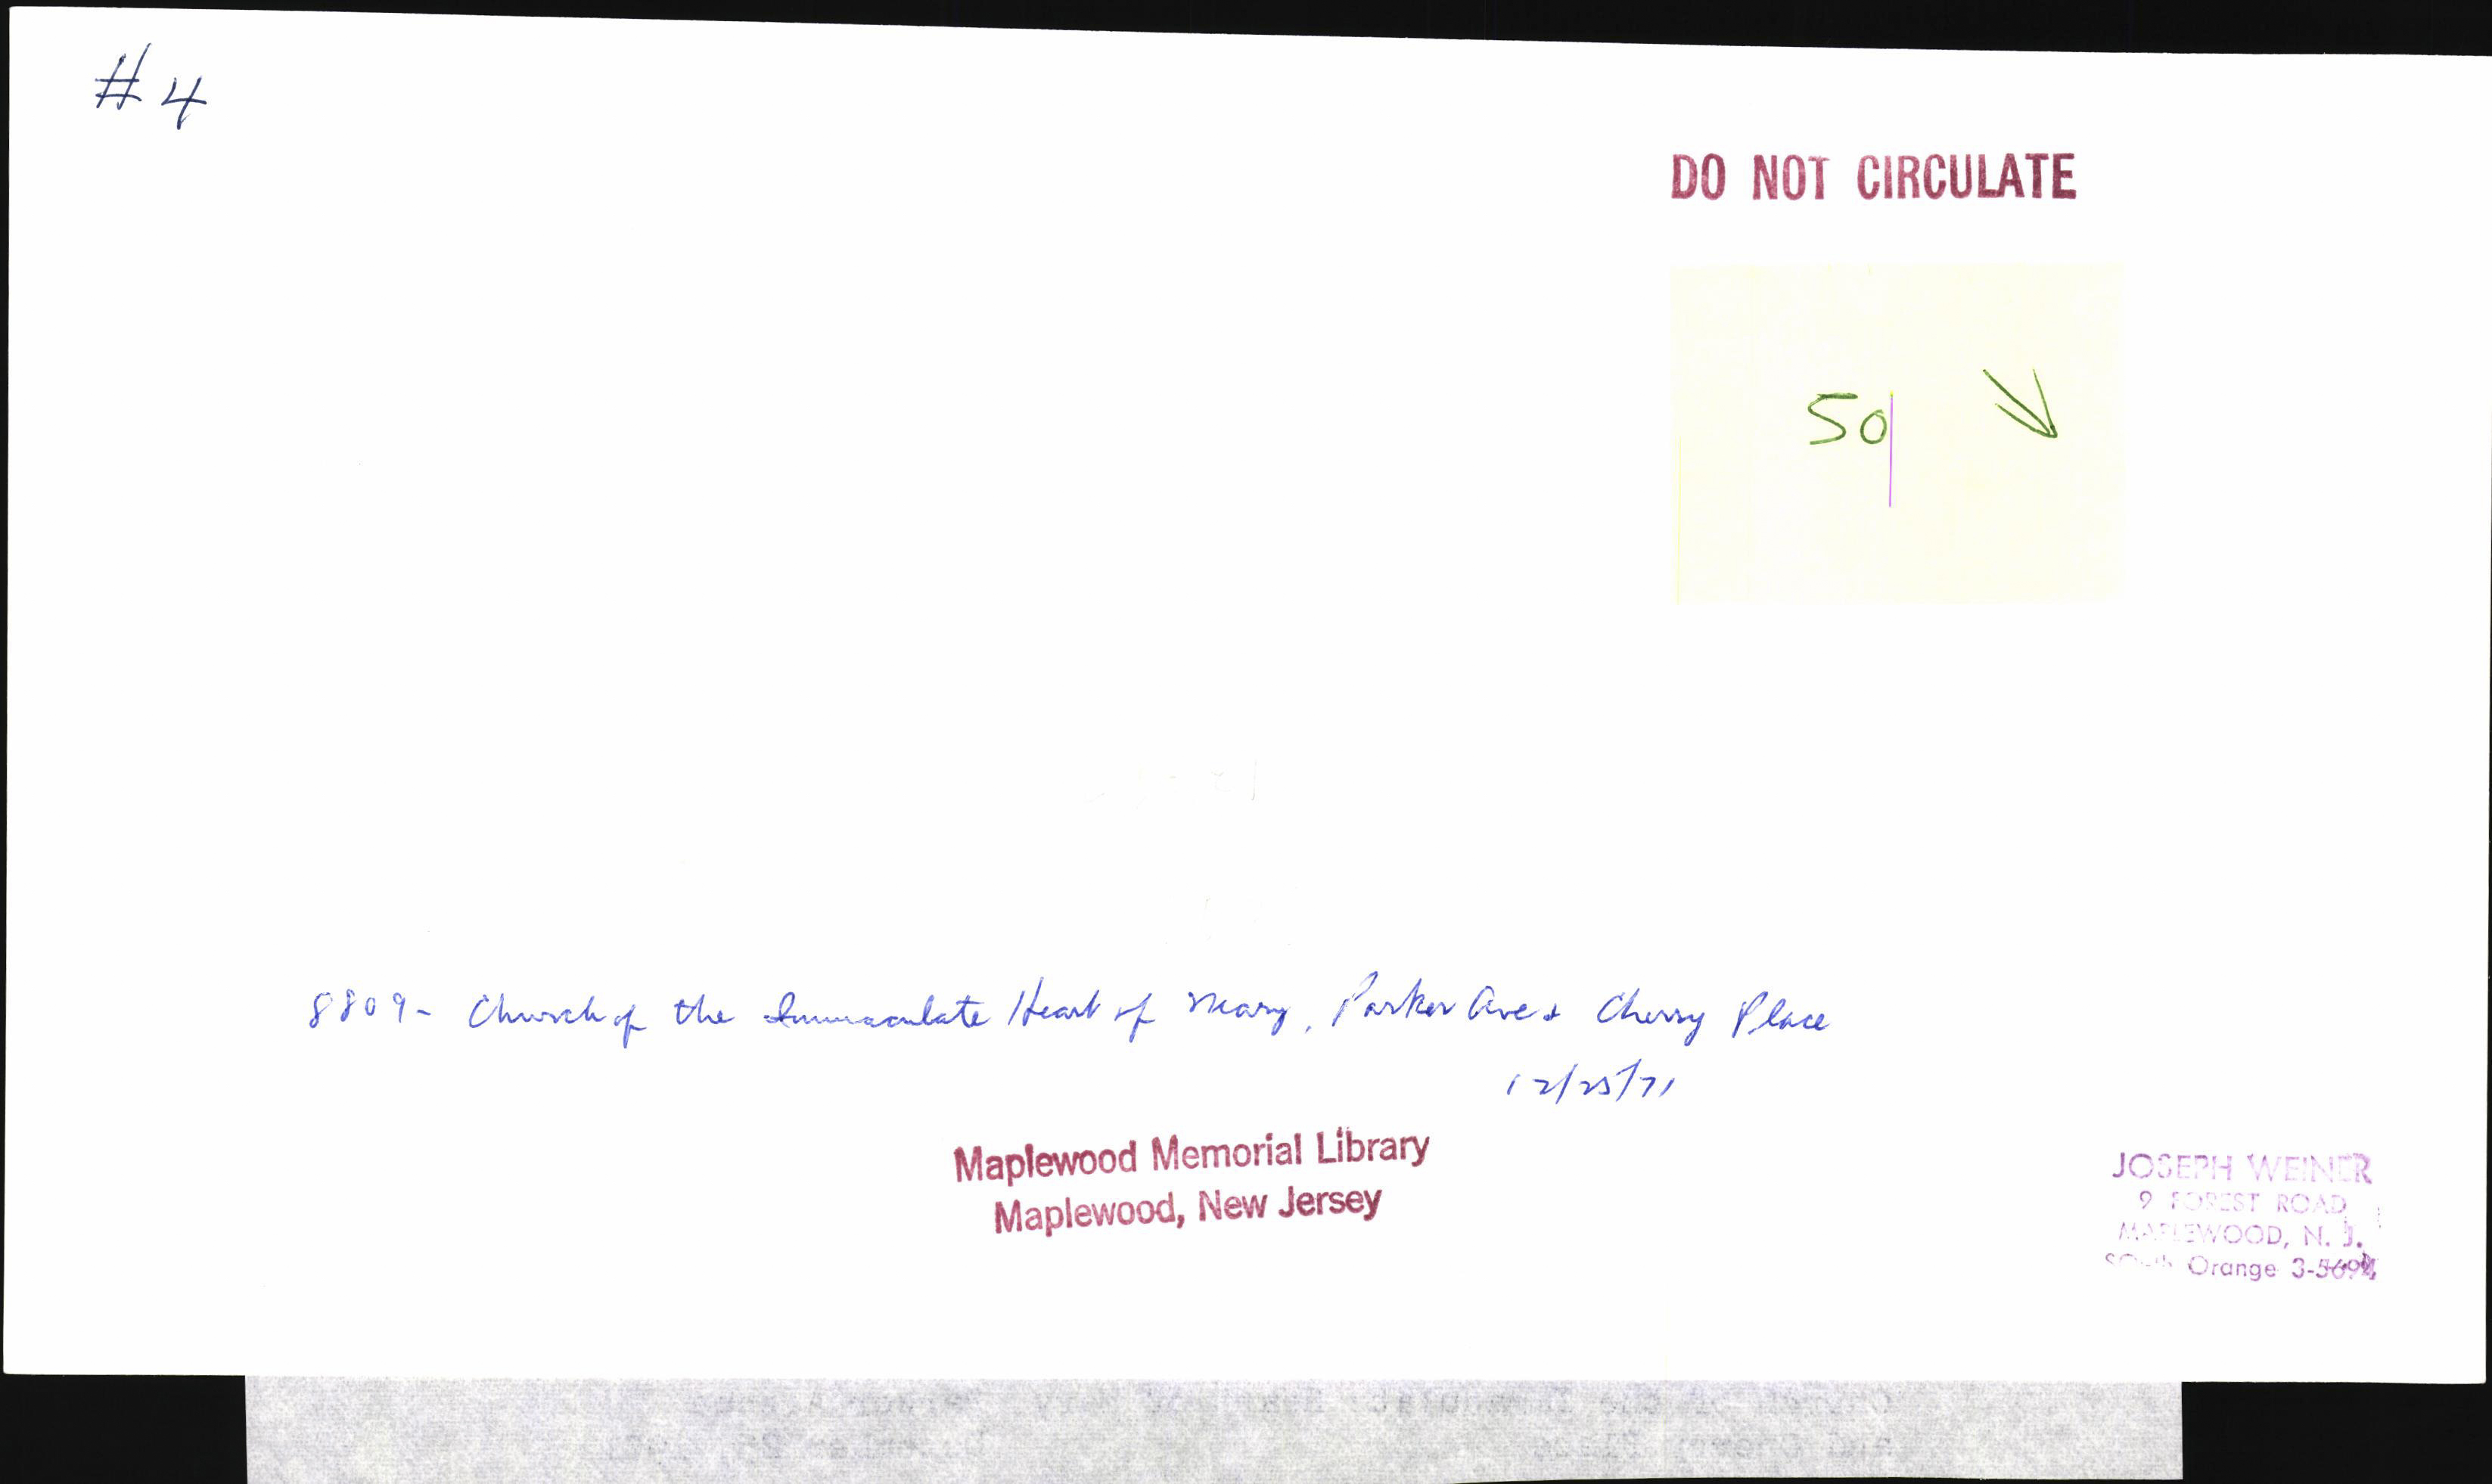 #4
DO NOT CIRCULATE
50
8809- Church of the Immaculate Heart of Mary, Parker Ave & Cherry Place
12/25/71
Maplewood Memorial Library
Maplewood, New Jersey
JOSEPH WEINER
9 FOREST ROAD
MAPLEWOOD, N. J.
SOuth Orange